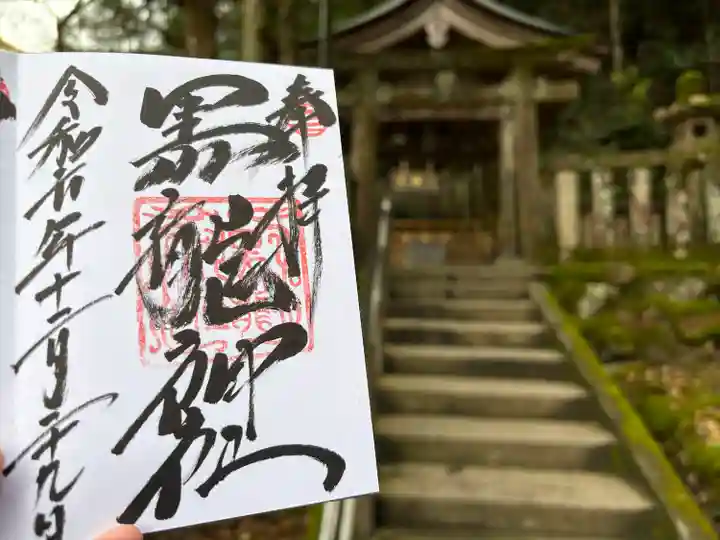 奉拝
黒龍神社
令和六年十二月二十九日